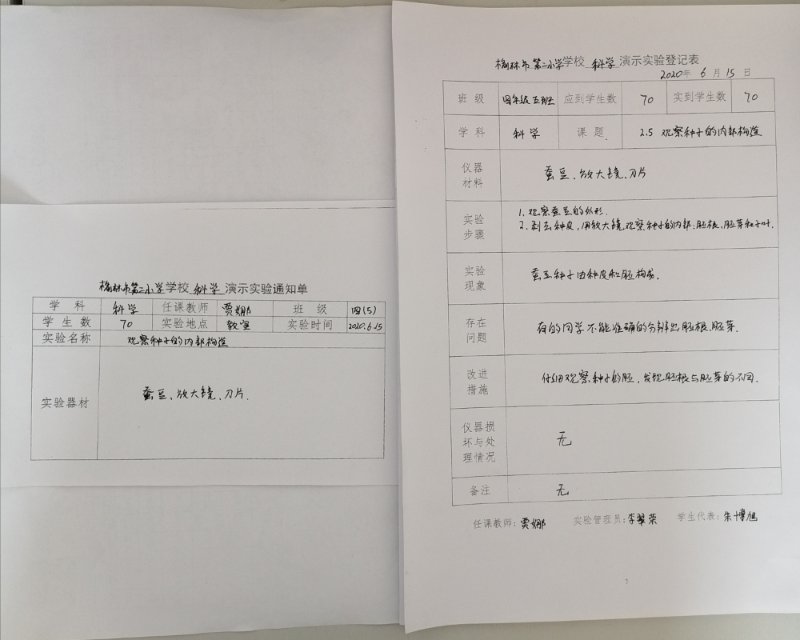 榆林市第二小学学校 科学 演示实验通知单
学 科 科学 任课教师 贾娜 班 级 四(5)
学 生 数 70 实验地点 教室 实验时间 2020.6.15
实验名称 观察种子的内部构造
实验器材 蚕豆、放大镜、刀片.
榆林市第二小学学校 科学 演示实验登记表
2020年 6 月 15 日
班 级 四年级五班 应到学生数 70 实到学生数 70
学 科 科学 课 题 2.5 观察种子的内部构造
仪器
材料
蚕豆、放大镜、刀片
实验
步骤
1. 观察蚕豆的外形.
2. 剥去种皮,用放大镜观察种子的内部、胚根、胚芽和子叶.
实验
现象
蚕豆种子由种皮和胚构成.
存在
问题
有的同学不能准确的分辨出胚根、胚芽.
改进
措施
仔细观察种子的胚,发现胚根与胚芽的不同.
仪器损
坏与处
理情况
无
备注 无
任课教师:贾娜 实验管理员:李翠荣 学生代表:朱博旭